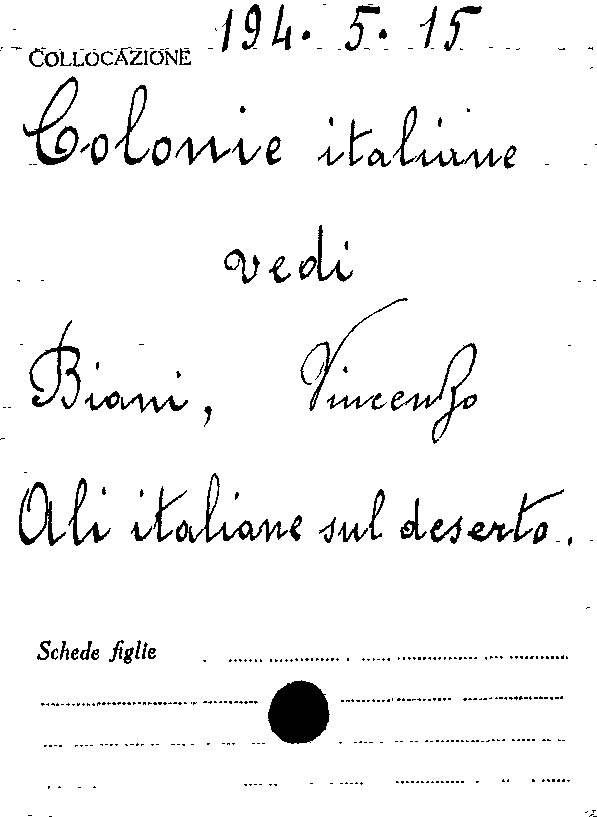 COLLOCAZIONE 194. 5. 15
Colonie italiane
vedi
Biani, Vincenzo
Ali italiane sul deserto.
Schede figlie